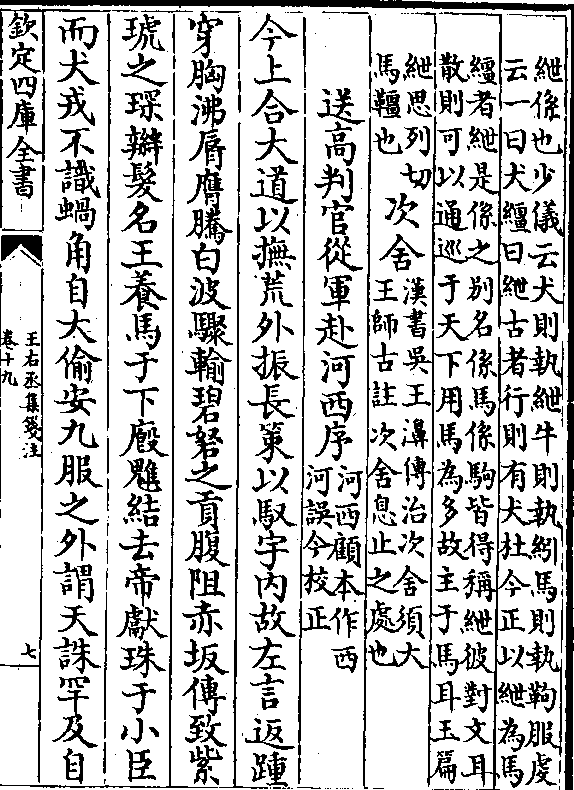 紲係也少儀云犬則執紲牛則執紖馬則執靮服虔
云一曰犬繮曰紲古者行則有犬杜今正以紲為馬
繮者紲是係之别名係馬係駒皆得稱紲彼對文耳
散則可以通巡于天下用馬為多故主于馬耳玉篇
紲思列切
馬韁也
次舍
漢書吳王濞傳治次舍須大
王師古註次舍息止之處也
送高判官從軍赴河西序
河西顧本作西
河誤今校正
今上合大道以撫荒外振長策以馭宇内故左言返踵
穿胸沸脣膺騰白波驟輸碧砮之貢腹阻赤坂傳致紫
琥之琛辮髮名王養馬于下廏魋結去帝獻珠于小臣
而犬戎不識蝸角自大偷安九服之外謂天誅罕及自
欽定四庫全書
王右丞集箋注
卷十九
七